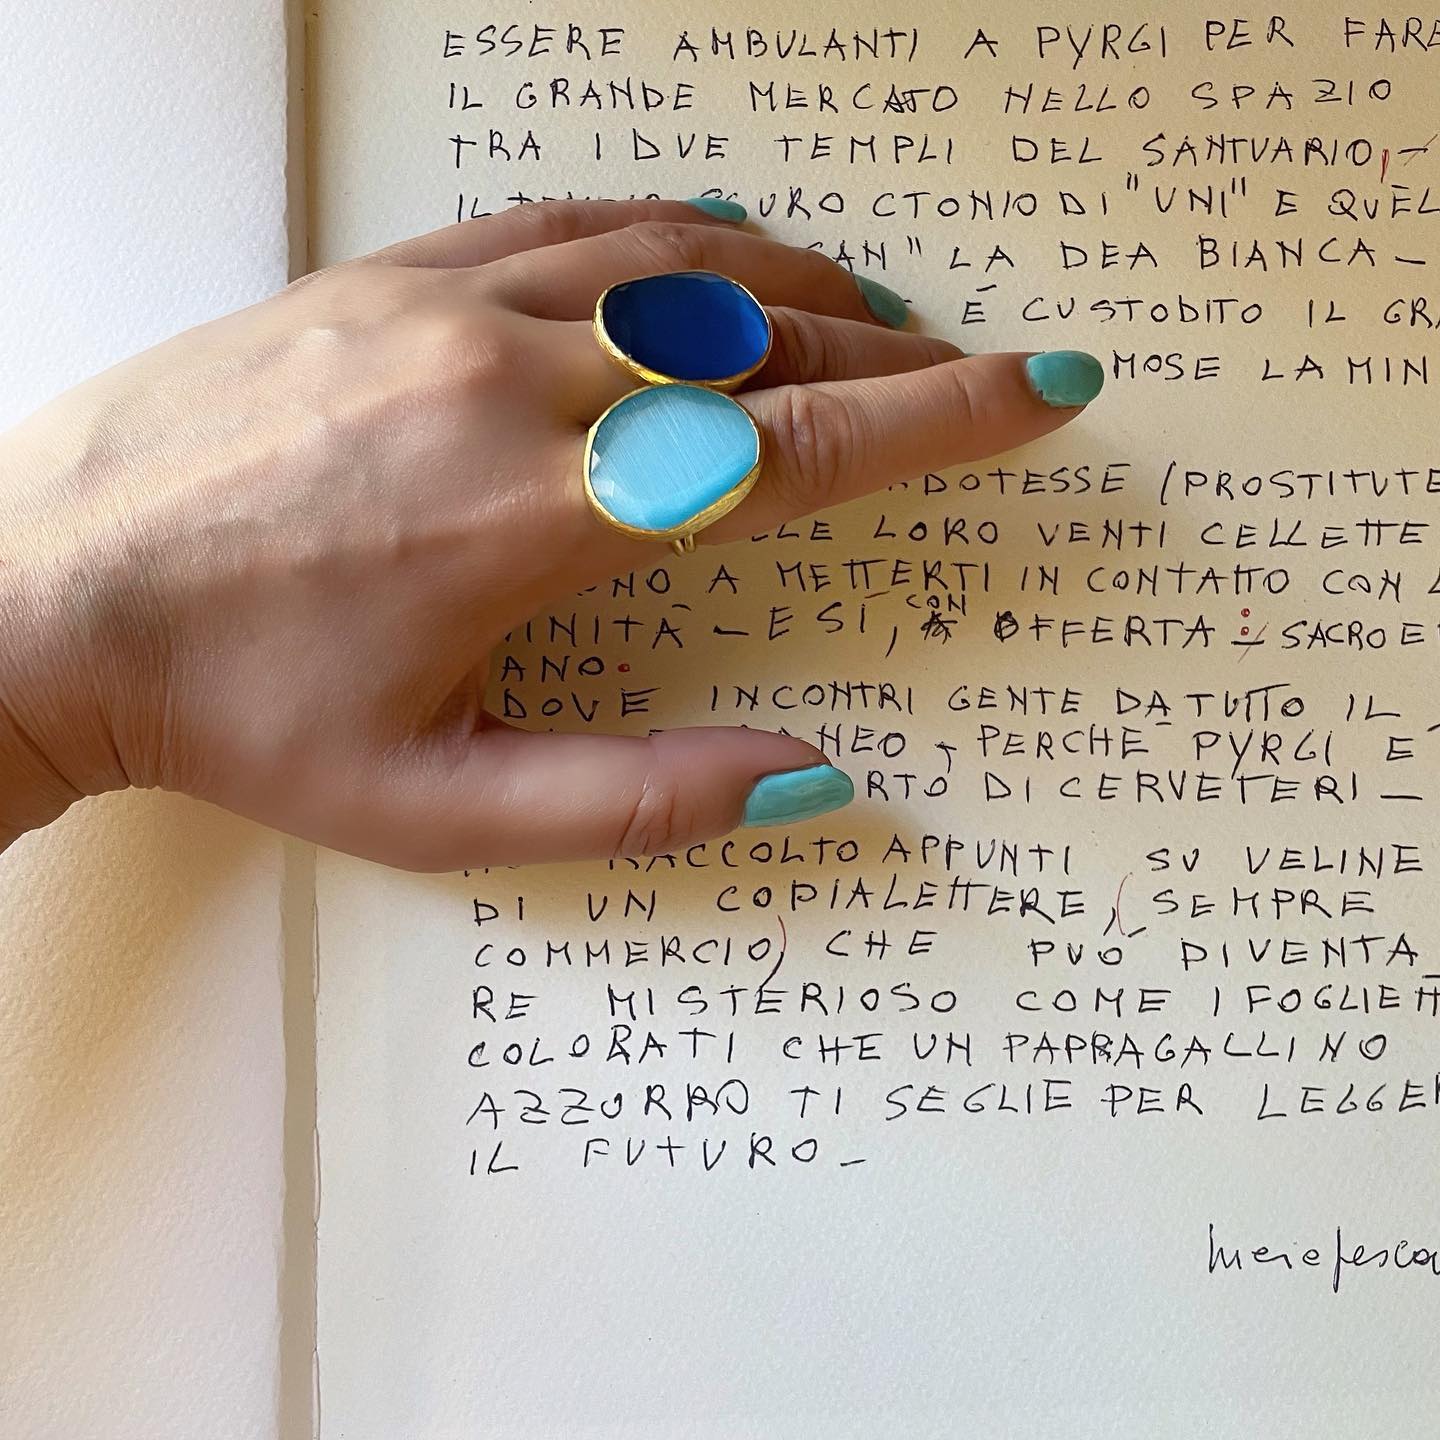 ESSERE AMBULANTI A PYRGI PER FARE
IL GRANDE MERCATO NELLO SPAZIO
TRA I DUE TEMPLI DEL SANTUARIO, -
IL CTONIO DI "UNI" E QUEL
" LA DEA BIANCA -
É CUSTODITO IL GRA
MOSE LA MIN
DOTESSE (PROSTITUTE
LE LORO VENTI CELLETTE
NO A METTERTI IN CONTATTO CON L
INITÀ - E SÍ, CON OFFERTA : SACRO E
ANO.
DOVE INCONTRI GENTE DA TUTTO IL
NEO, PERCHÉ PYRGI É
RTO DI CERVETERI -
RACCOLTO APPUNTI SU VELINE
DI UN COPIALETTERE, SEMPRE
COMMERCIO, CHE PUÓ DIVENTA
RE MISTERIOSO COME I FOGLIETT
COLORATI CHE UN PAPRAGALLINO
AZZURRO TI SEGLIE PER LEGGER
IL FUTURO -